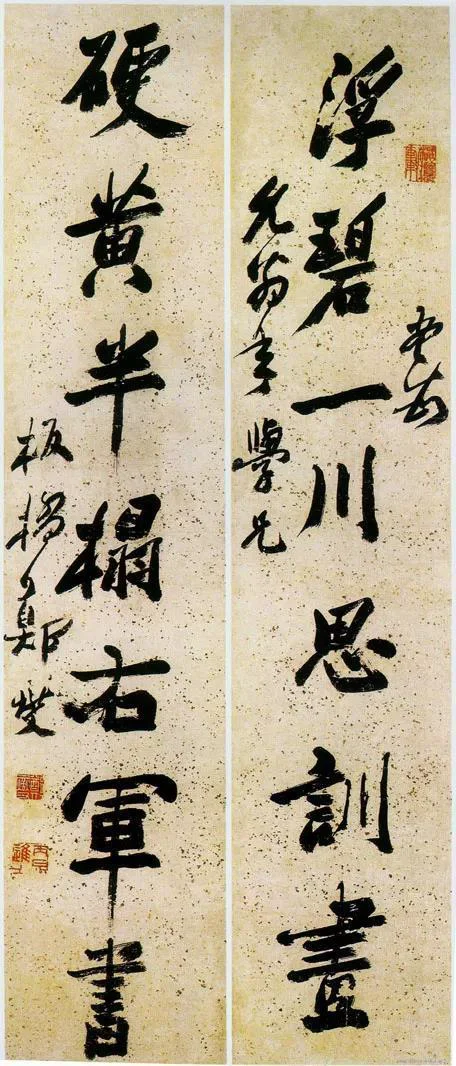 浮碧一川思訓畫
允翁年學兄
硬黃半榻右軍書
板橋鄭燮
丙辰進士